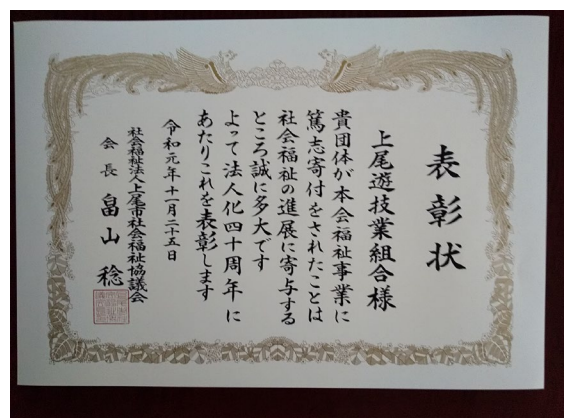 表彰状
上尾遊技業組合様
貴団体が本会福祉事業に
篤志寄付をされたことは
社会福祉の進展に寄与する
ところ誠に多大です
よって法人化四十周年に
あたりこれを表彰します
令和元年十一月二十五日
社会福祉法人上尾市社会福祉協議会
会長 畠山 稔